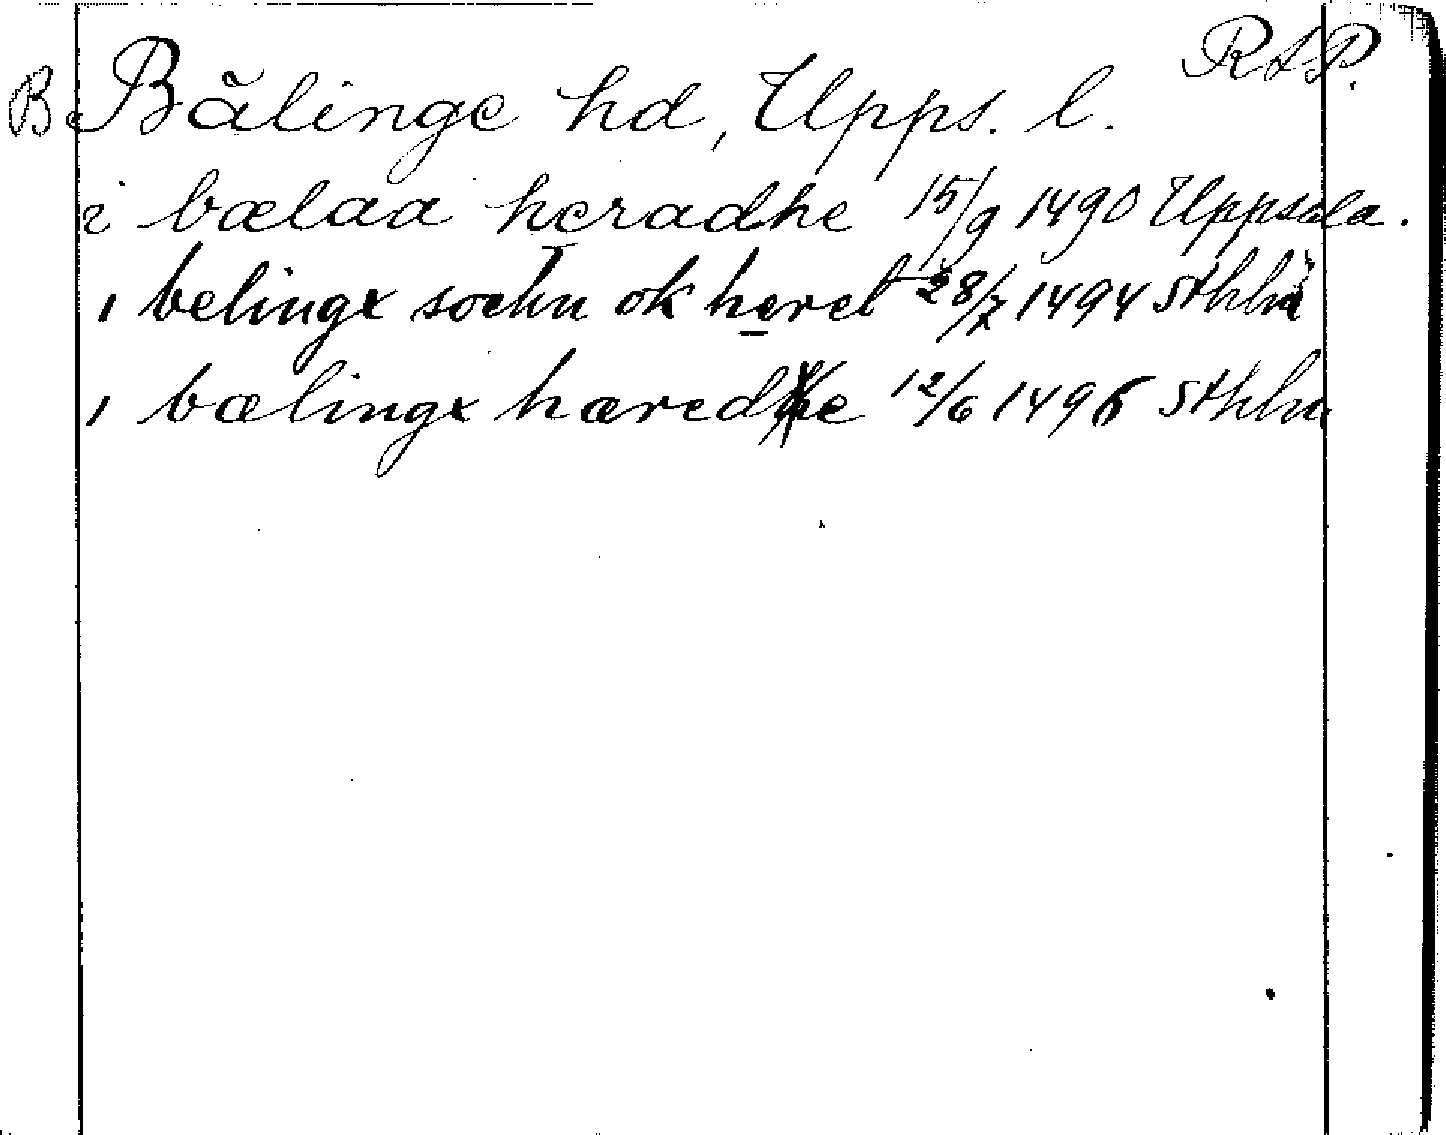 RAP.
Bälinge hd, Upps. l.
i bælaa heradhe 15/9 1490 Uppsala.
i belingx sochn ok heret 28/7 1494 Sthlm
i bælingx hæredhe 12/6 1496 Sthlm